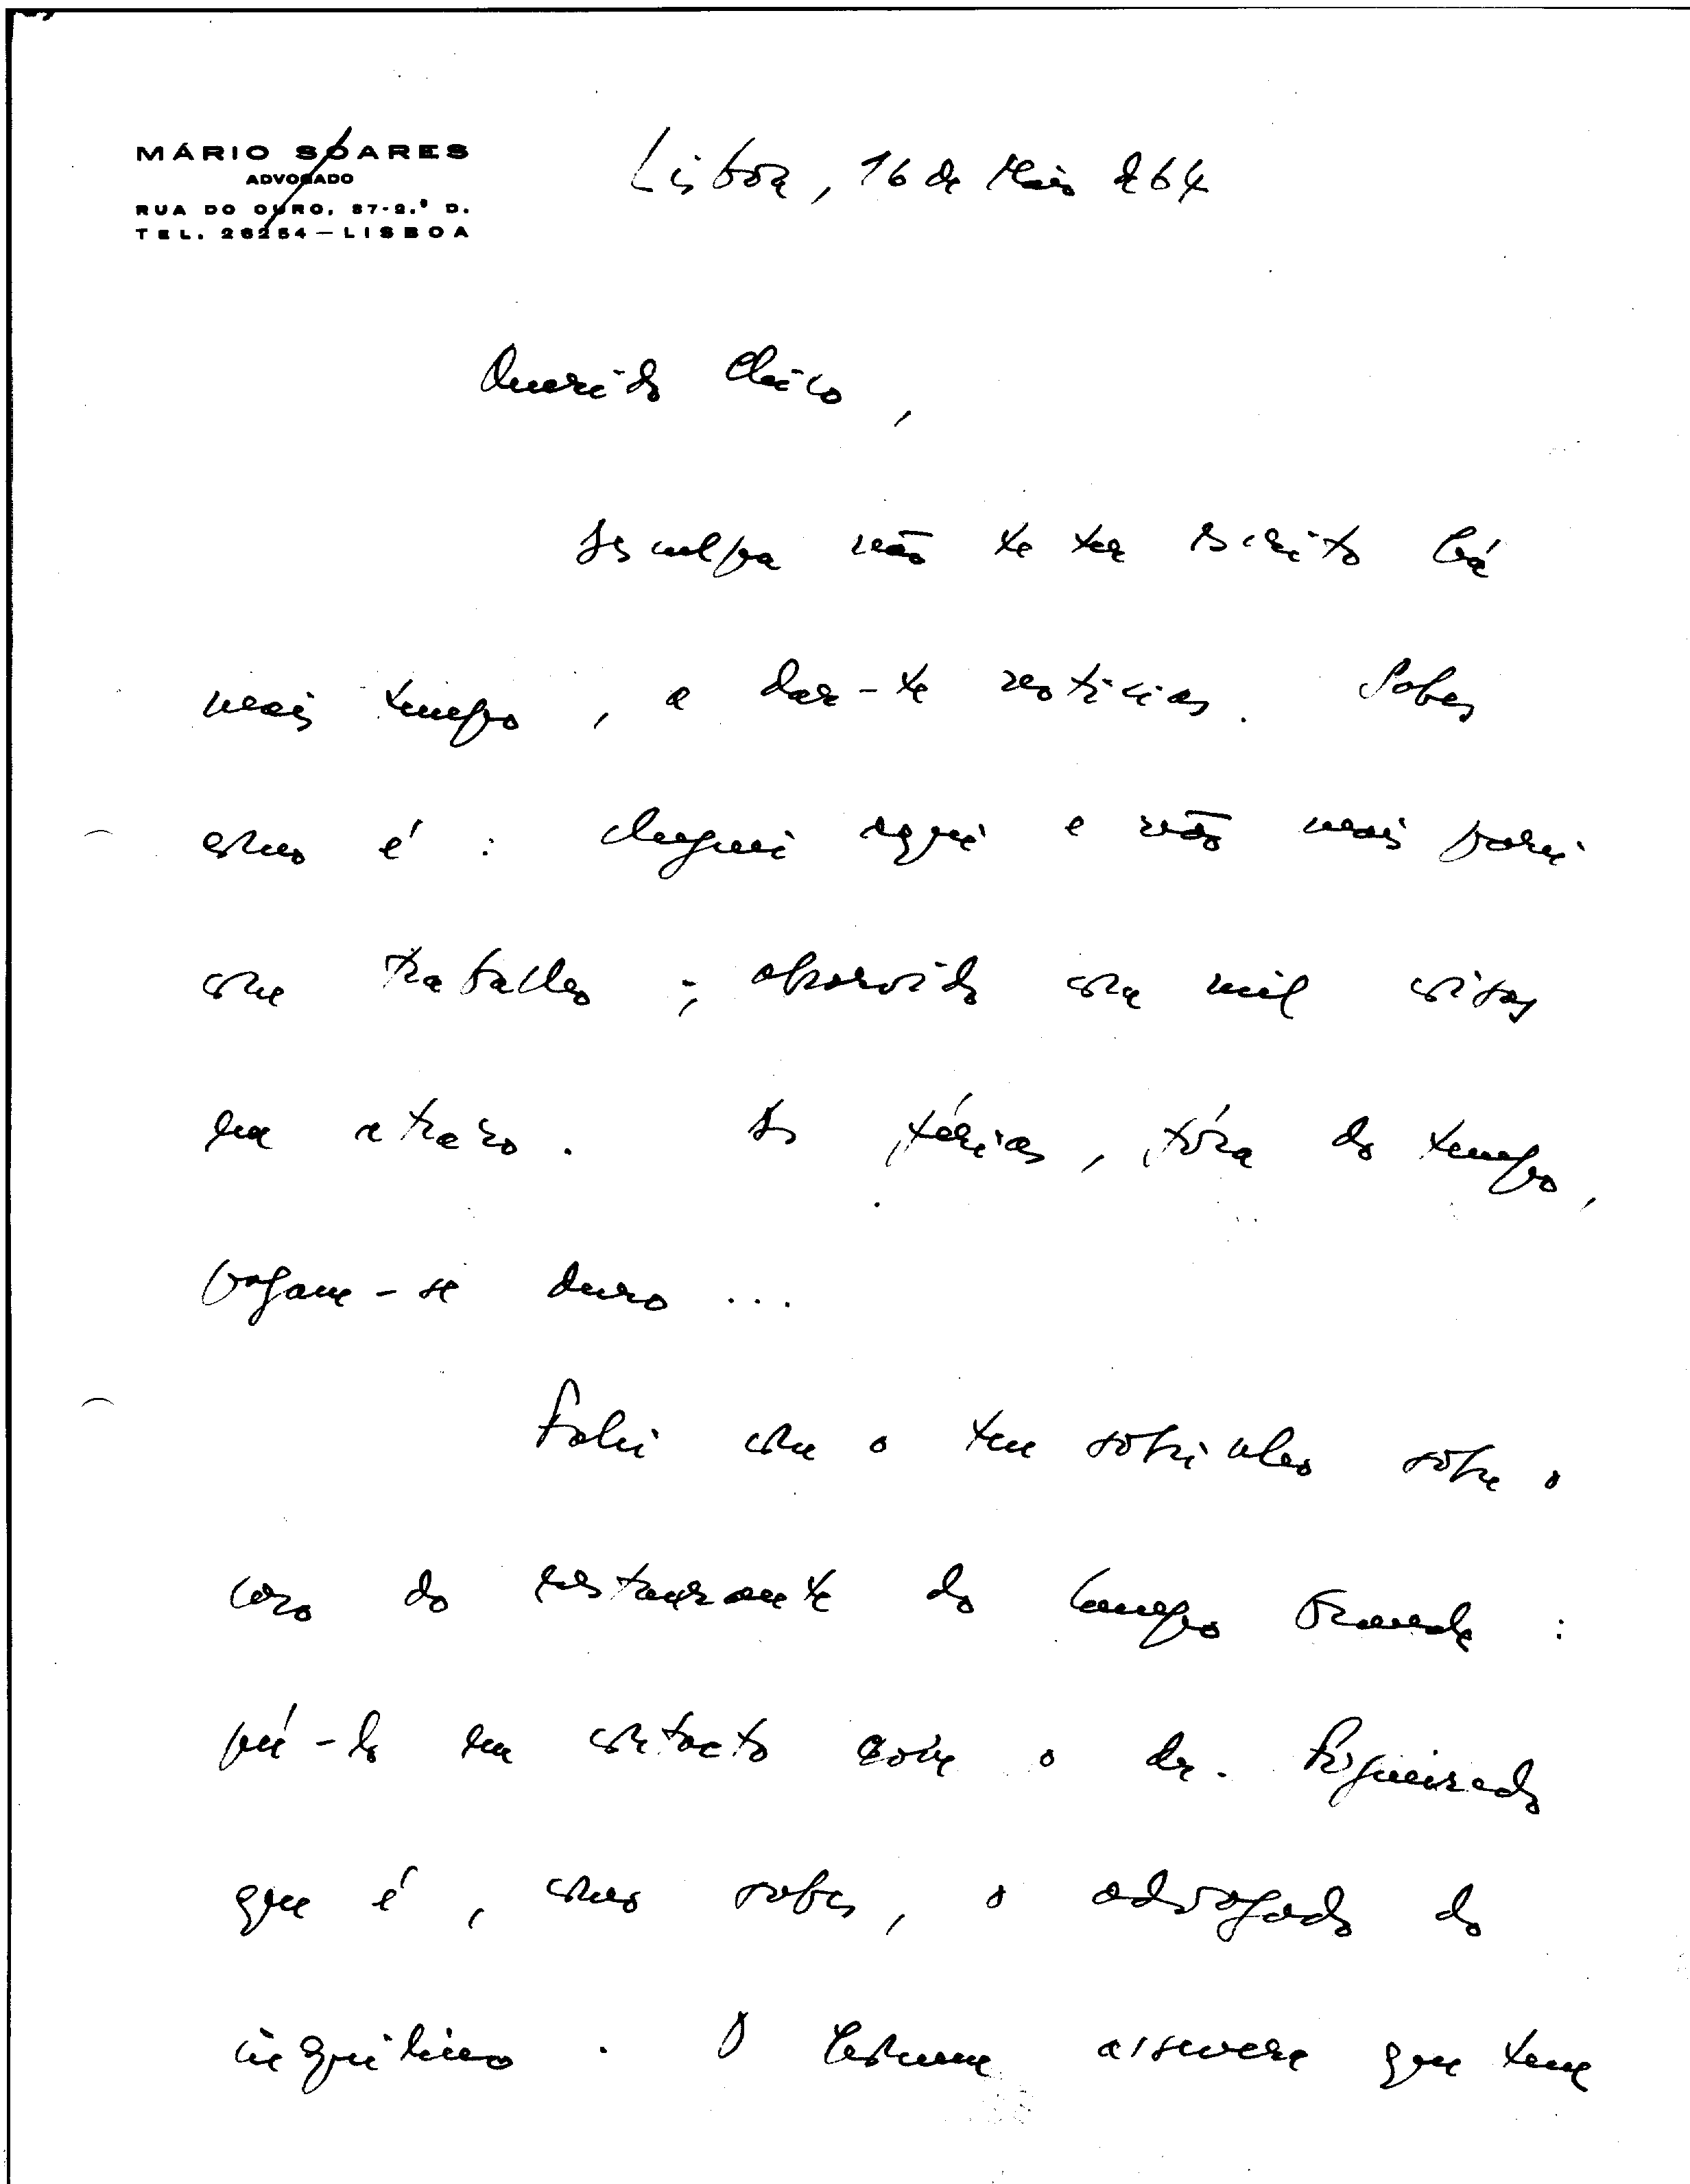 MÁRIO SOARES
ADVOGADO
RUA DO OURO, 87-2.º D.
TEL. 26254 — LISBOA
Lisboa, 16 de Maio de 64
Querido Chico,
desculpa não te ter escrito há
mais tempo, a dar-te notícias. Sabes
como é: cheguei aqui e não mais parei
com trabalho; absorvido com mil coisas
em atrazo. As férias, fóra do tempo,
pagam-se duro...
Falei com o teu sobrinho sobre o
caso do restaurante do Campo Grande:
pú-lo em contacto com o dr. Figueiredo
que é, como sabes, o advogado do
inquilino. O homem assevera que tem